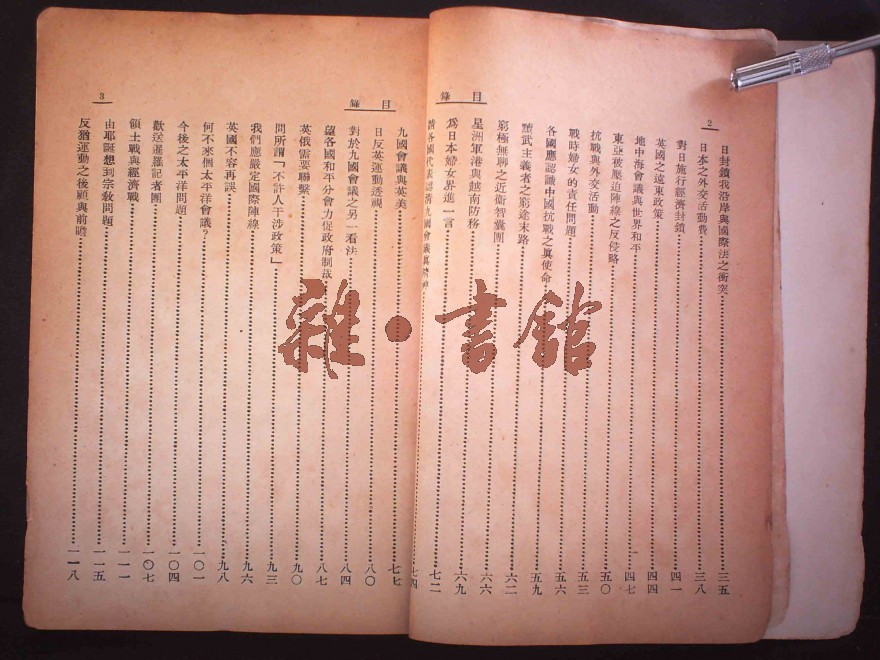 2
目錄
日封鎖我沿岸與國際法之衝突……三五
日本之外交活動費……三八
對日施行經濟封鎖……四一
英國之遠東政策……四四
地中海會議與世界和平……四七
東亞被壓迫陣線之反侵略……五〇
抗戰與外交活動……五三
戰時婦女的責任問題……五六
各國應認識中國抗戰之眞使命……五九
黷武主義者之窮途末路……六二
窮極無聊之近衞智囊團……六六
星洲軍港與越南防務……六九
爲日本婦女界進一言……七二
各國代表認清九國會議眞……七四
目錄
3
九國會議與英美……七七
日反英運動透視……八〇
對於九國會議之另一看法……八四
望各國和平分會力促政府制裁……八七
英俄需要聯繫……九〇
問所謂「不許人干涉政策」……九三
我們應嚴定國際陣線……九六
英國不容再誤……九八
何不來個太平洋會議？……一〇一
今後之太平洋問題……一〇四
歡送暹羅記者團……一〇七
領土戰與經濟戰……一一一
由耶誕想到宗教問題……一一五
反猶運動之後顧與前瞻……一一八
雜·書館